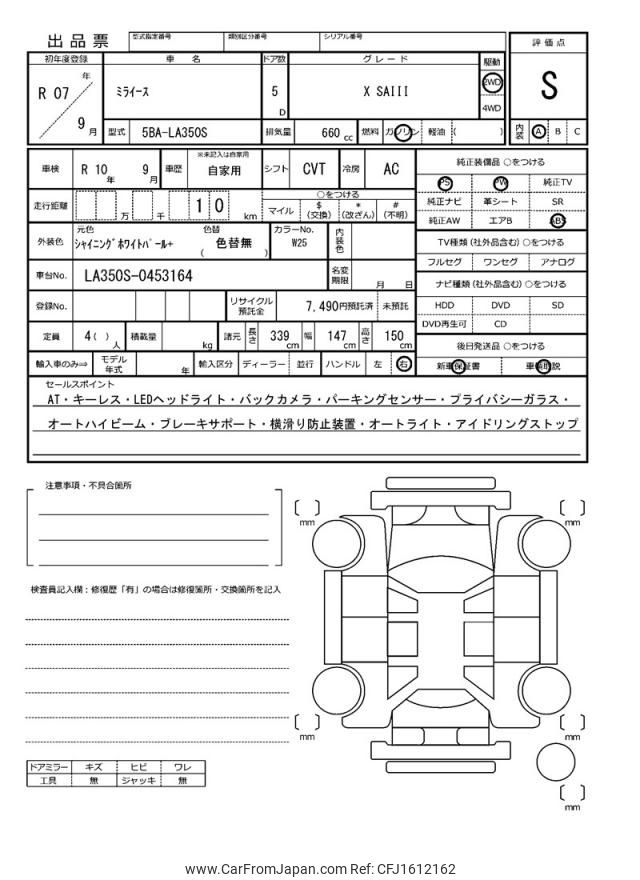 出品票
型式指定番号 類別区分番号 シリアル番号
評価点
S
内装 A B C
初年度登録 車名 ドア数 グレード 駆動
R 07 年 9 月
ミライース
5 D
X SAIII
2WD
4WD
型式 5BA-LA350S 排気量 660 cc 燃料 ガソリン 軽油 ( )
車検 R 10 年 9 月 車歴 ※未記入は自家用 自家用 シフト CVT 冷房 AC
走行距離 万 千 1 0 km
○をつける
マイル $(交換) *(改ざん) #(不明)
外装色 元色 シャイニングホワイトパール+ 色替 ( 色替無 ) カラーNo. W25 内装色
車台No. LA350S-0453164 名変期限 月 日
登録No. リサイクル預託金 7,490円預託済 未預託
定員 4( ) 人 積載量 kg 諸元 長さ 339 cm 幅 147 cm 高さ 150 cm
輸入車のみ⇒ モデル年式 年 輸入区分 ディーラー 並行 ハンドル 左 右
純正装備品 ○をつける
PS PW 純正TV
純正ナビ 革シート SR
純正AW エアB ABS
TV種類 (社外品含む) ○をつける
フルセグ ワンセグ アナログ
ナビ種類 (社外品含む) ○をつける
HDD DVD SD
DVD再生可 CD
後日発送品 ○をつける
新車保証書 車輌取説
セールスポイント
AT・キーレス・LEDヘッドライト・バックカメラ・パーキングセンサー・プライバシーガラス・
オートハイビーム・ブレーキサポート・横滑り防止装置・オートライト・アイドリングストップ
注意事項・不具合箇所
検査員記入欄：修復歴「有」の場合は修復箇所・交換箇所を記入
mm
mm
mm
mm
mm
ドアミラー キズ ヒビ ワレ
工具 無 ジャッキ 無
www.CarFromJapan.com Ref: CFJ1612162